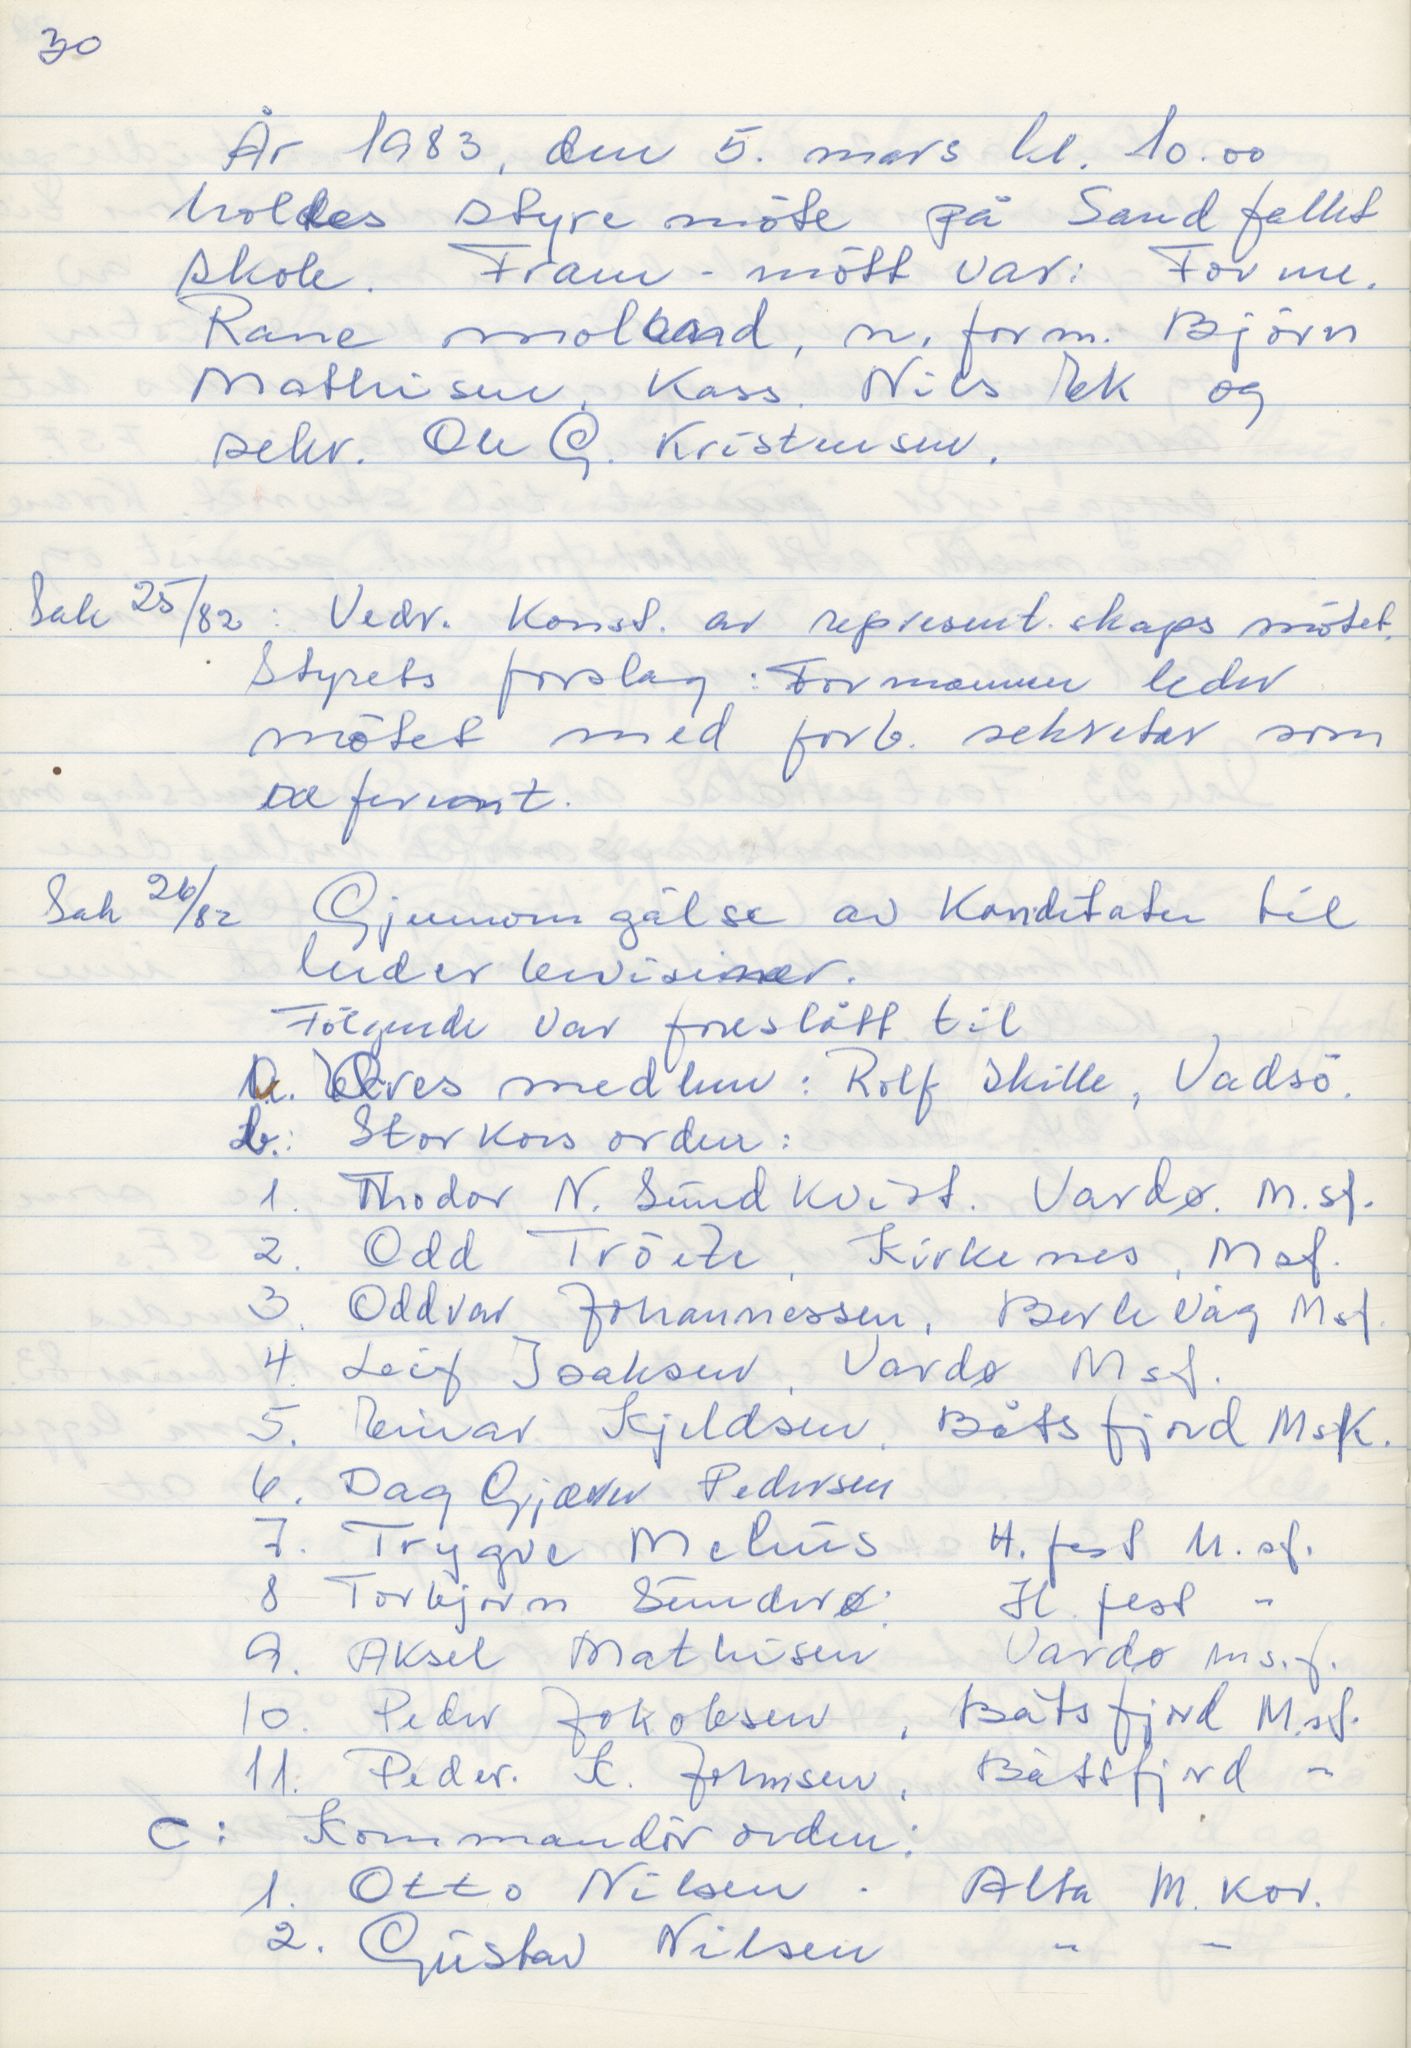 30
År 1983, den 5. mars kl. 10.00
holdes styremöte på Sandfallet
skole. Fram-mött var: Form.
Rane Molland, n. form. Björn
Mathisen, Kass. Nils Eek og
sekr. Ole G. Kristensen.
Sak 25/82: Vedr. Konst. av represent.skapsmötet.
Styrets forslag: Formannen leder
mötet med forb. sekretær som
referent.
Sak 26/82 Gjennomgålse av Kanditater til
hedersbevisninger.
Fölgende var foreslått til
a. Æresmedlem: Rolf Skille, Vadsö.
b.: Storkors orden:
1. Thodor N. Sundkvist. Vardø. M.sf.
2. Odd Tröite, Kirkenes, Msf.
3. Oddvar Johannessen, Berlevåg Msf.
4. Leif Isaksen, Vardø Msf.
5. Einar Kjeldsen, Båtsfjord MsK.
6. Dag Gjæver Pedersen
7. Trygve Mehus H.fest M.sf.
8 Torbjørn Sunderø: H.fest "
9. Aksel Mathisen Vardø ms.f.
10. Peder Jakobsen, Båtsfjord M.sf.
11. Peder. K. Johnsen, Båtsfjord "
C: Kommandör orden:
1. Otto Nilsen. Alta M. kor.
2. Gustav Nilsen " "